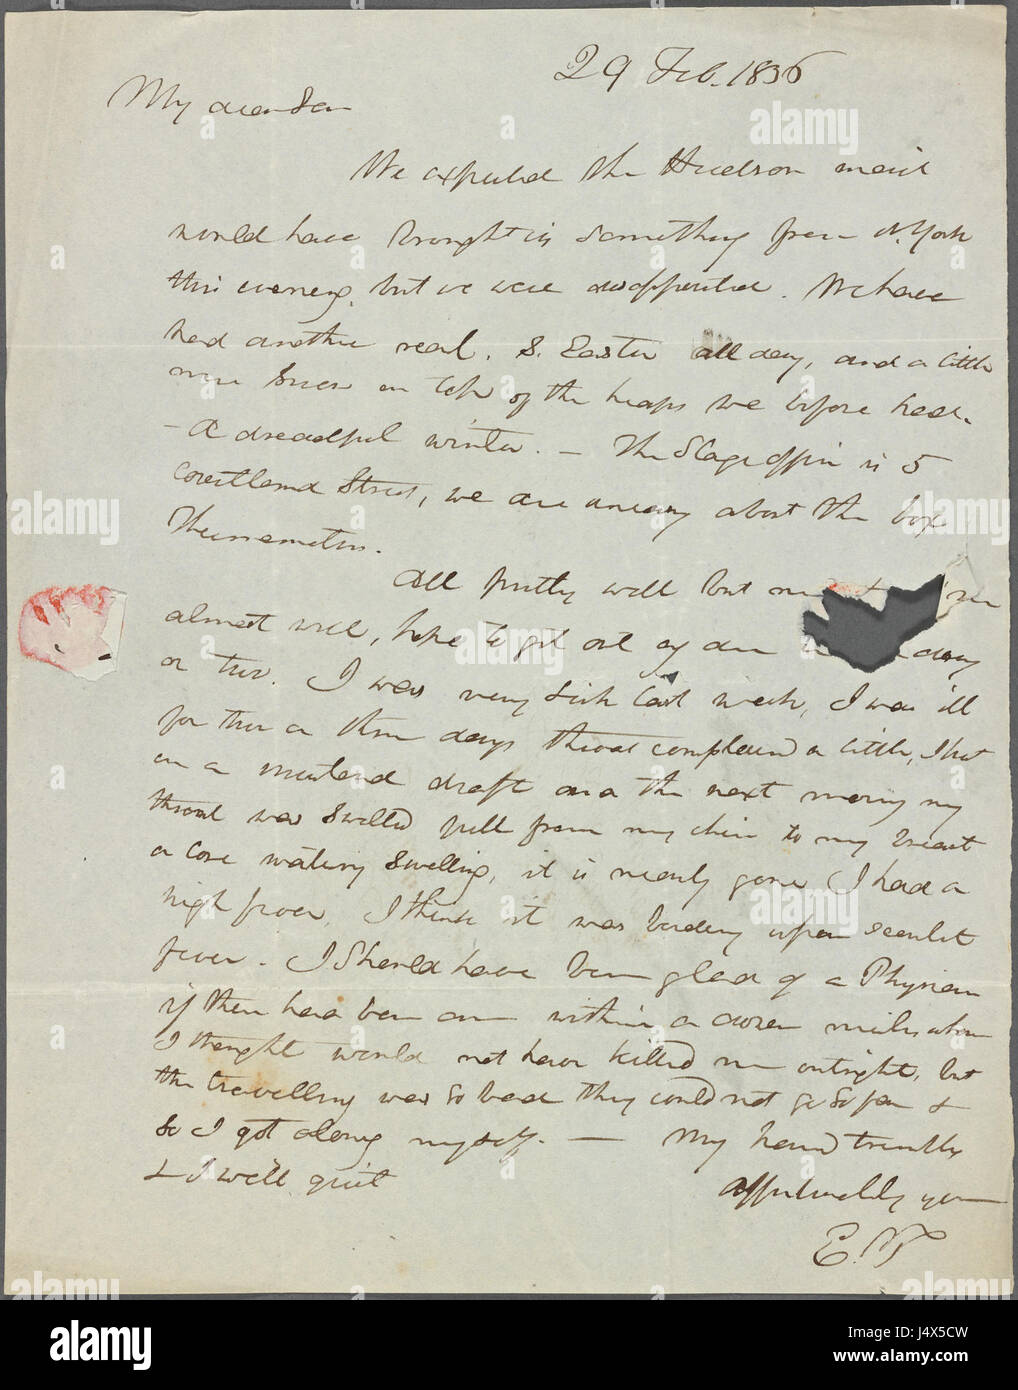 29 Feb. 1836
My dear Son
We expected the Hudson mail
would have brought us something from N. York
this evening, but we were disappointed. We have
had another real. S. Easter all day, and a little
more snow on top of the heaps we before had.
- A dreadful winter. - The Stage Office is 5
Courtland Street, we are uneasy about the box
Thermometers.
All pretty well but
almost well, hope to get out day
or two. I was very sick last week, I was ill
for two or three days throat complained a little, I
in a draft and the next morng my
throat was swelled full from my chin to my breast
a watery swelling, it is nearly gone I had a
high fever, I think it was bordering upon scarlet
fever. I Should have been glad of a Physician
if there had been one within a dozen miles whom
I thought would not have killed me outright, but
the travelling was so bad they could not go so far &
so I got along myself. - My hand trembles
& I will quit
affectionately yours
E. T
alamy
alamy
a
alamy stock photo
I4X5CW
www.alamy.com